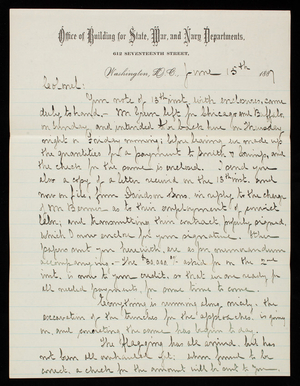 Office of Building for State, War, and Navy Departments,
612 SEVENTEENTH STREET,
Washington, D.C., June 15th 1887
Colonel:
Your note of 13th inst. with enclosures, came
duly to hand. Mr Ewin left for Chicago and Buffalo
on Sunday, and intended to be back here on Thursday
night or Friday morning; before leaving he made up
the quantities for a payment to Smith &
the check for the same is enclosed. I send you
also a copy of a letter received on the 13th inst. and
now on file, from Davidson Sons. in reply to the charge
of Mr Bonner as to their employment of convict
labor, and transmitting their contract properly signed
which I now enclose for your signature. Other
papers sent you herewith, are as per memorandum
accompanying. The $30,000 00 asked for on the 2nd
inst. is now to your credit, so that we are ready for
all needed payments, for some time to come.
Everything is running along nicely, the
excavation of the trenches for the approaches, is going
on, and concreting the same has begun to-day.
The flagging has all arrived, but has
not been all unloaded yet. When found to be
correct, a check for the amount will be sent to you.